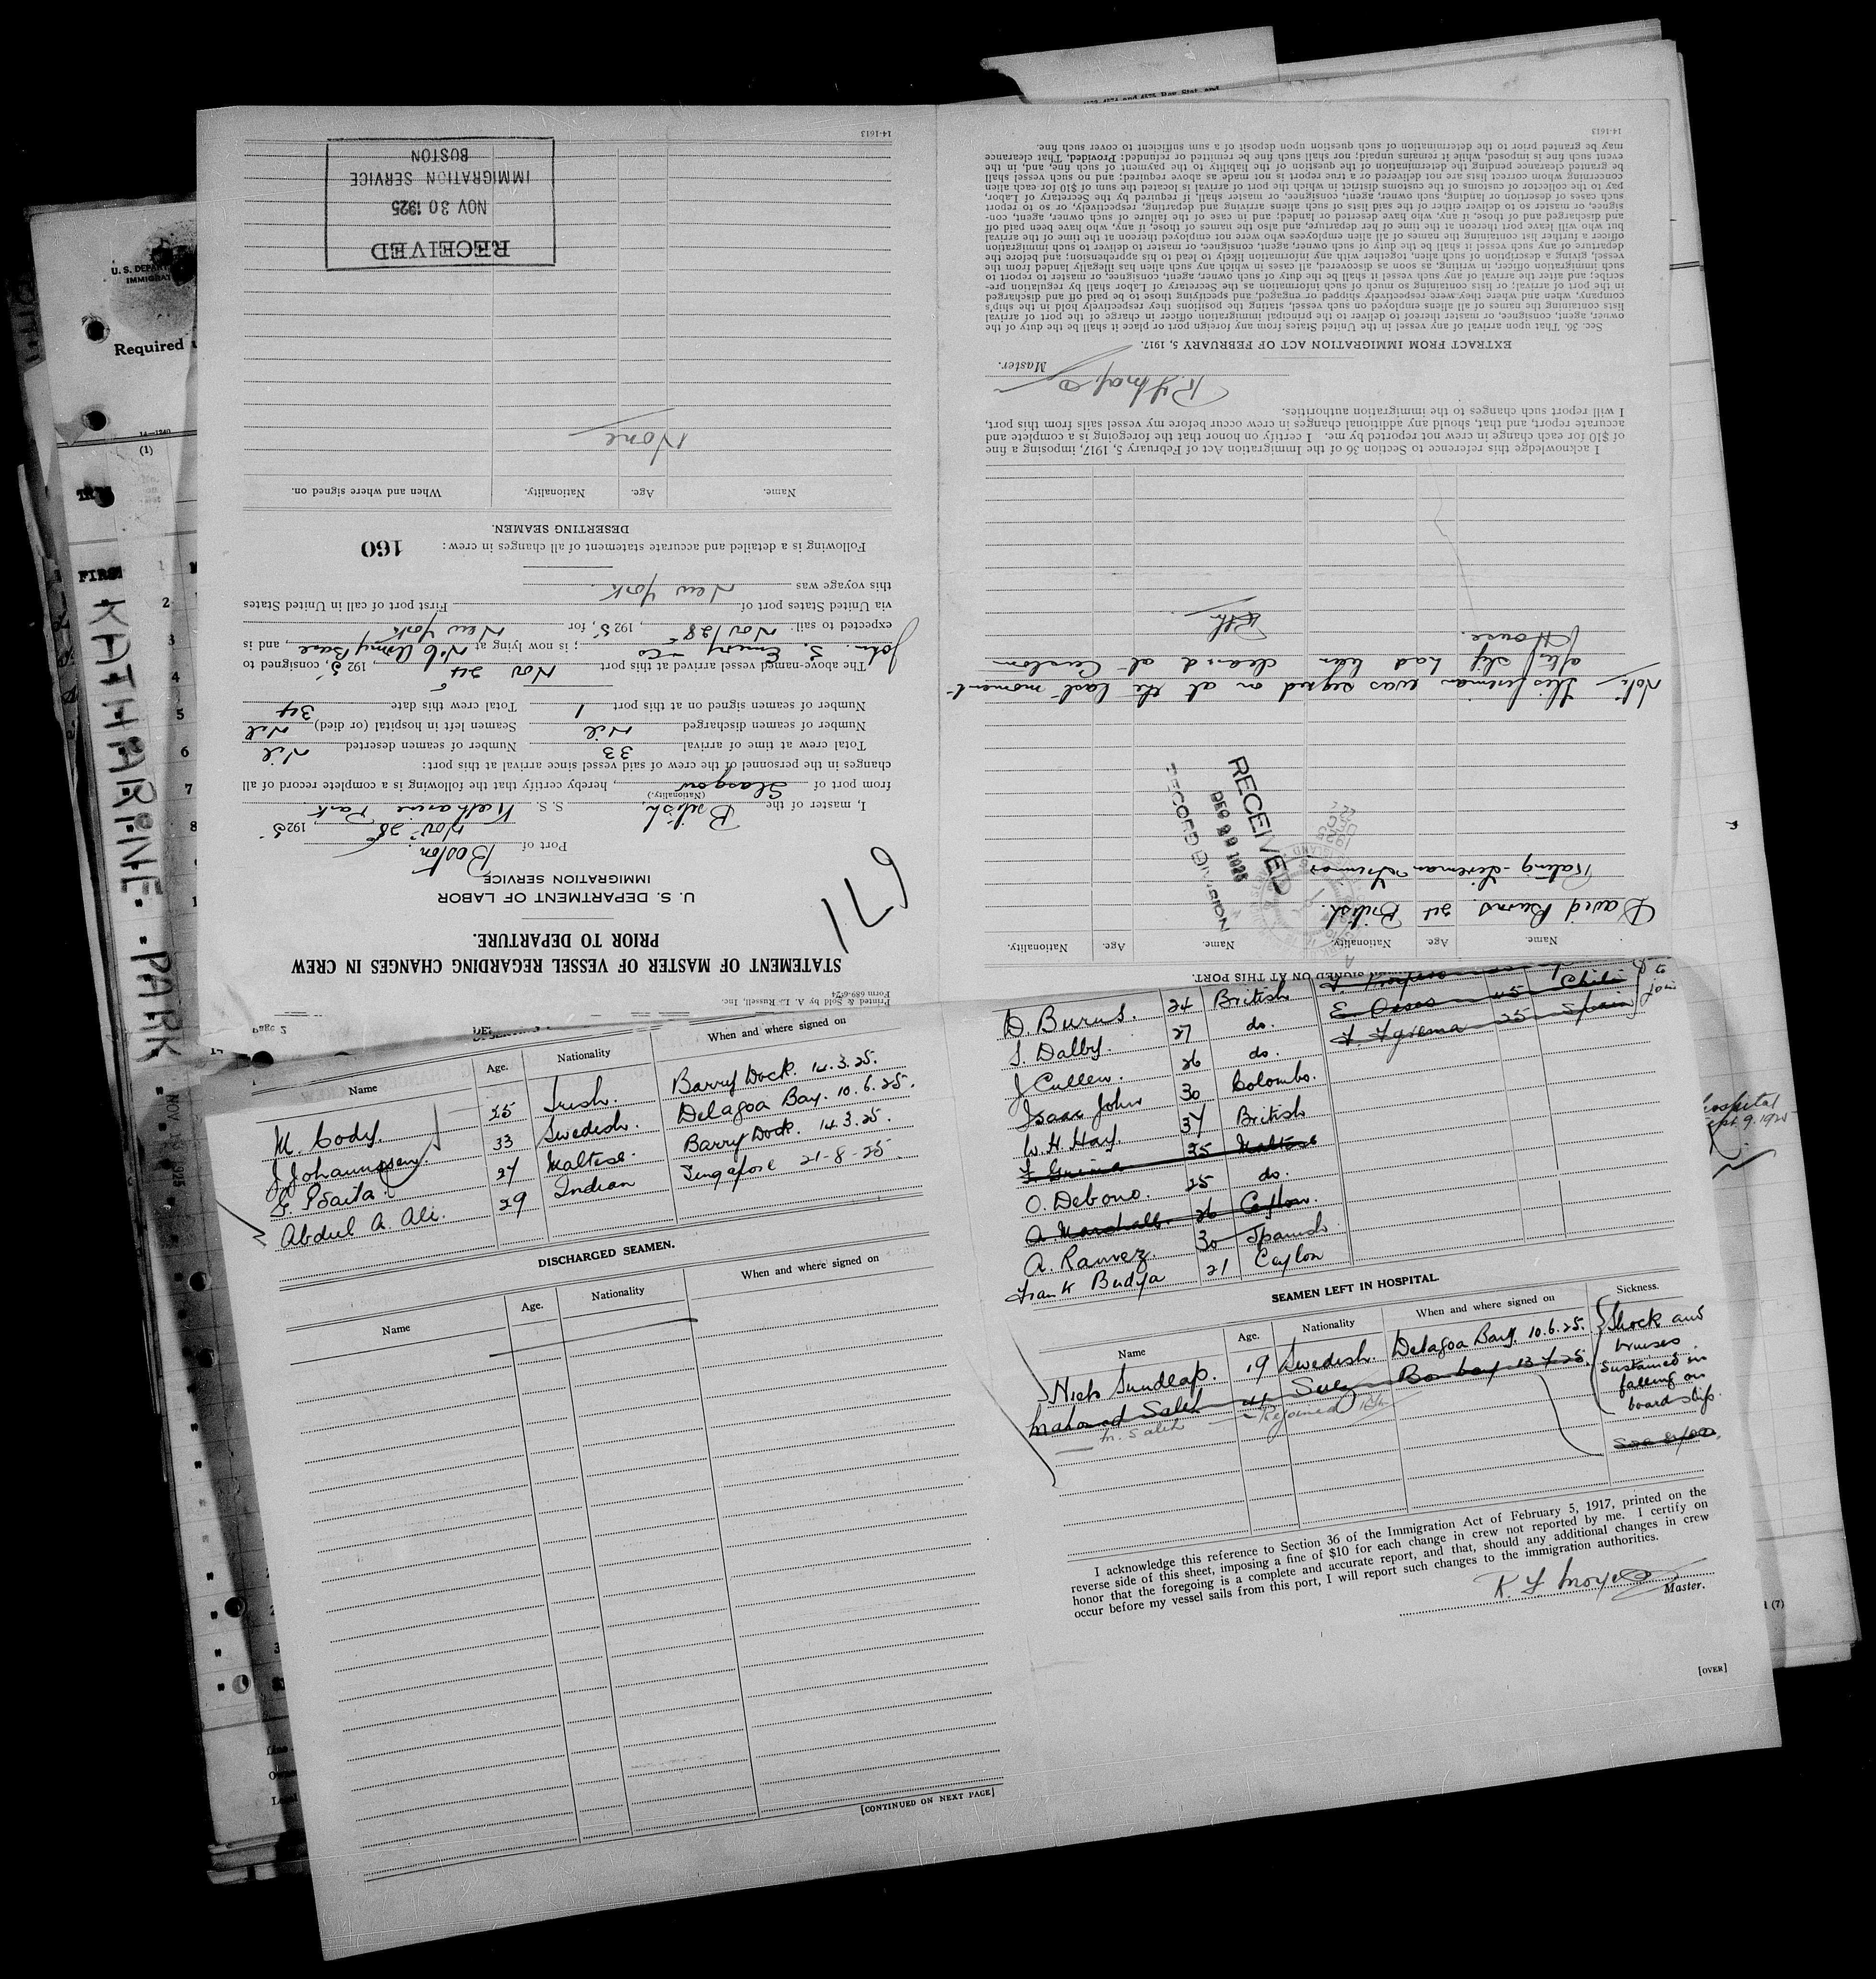 Printed & Sold by A. L. Russell, Inc.
Form 689-6-24
STATEMENT OF MASTER OF VESSEL REGARDING CHANGES IN CREW
PRIOR TO DEPARTURE.
U. S. DEPARTMENT OF LABOR
IMMIGRATION SERVICE
179
Port of Boston
Nov. 28, 1925
I, master of the British, S. S. Katharine Park
(Nationality)
from port of Glasgow, hereby certify that the following is a complete record of all
changes in the personnel of the crew of said vessel since arrival at this port:
Total crew at time of arrival 33 Number of seamen deserted Nil
Number of seamen discharged Nil Seamen left in hospital (or died) Nil
Number of seamen signed on at this port 1 Total crew this date 34
The above-named vessel arrived at this port Nov 24, 1925, consigned to
John S. Emery & Co; is now lying at No 6 Army Base, and is
expected to sail: Nov/28, 1925, for New York
via United States port of First port of call in United States
this voyage was New York.
Following is a detailed and accurate statement of all changes in crew: 160
DESERTING SEAMEN.
Name. Age. Nationality. When and where signed on.
None
RECEIVED
NOV 30 1925
IMMIGRATION SERVICE
BOSTON
14-1613
SIGNED ON AT THIS PORT.
Name. Age. Nationality. Name. Age. Nationality.
David Burns. 24 British.
Rating - Fireman & Trimmer
RECEIVED
DEC 29 1925
RECORD DIVISION
Note This fireman was signed on at the last moment
after ship had been cleared at Custom
House.
I acknowledge this reference to Section 36 of the Immigration Act of February 5, 1917, imposing a fine
of $10 for each change in crew not reported by me. I certify on honor that the foregoing is a complete and
accurate report, and that, should any additional changes in crew occur before my vessel sails from this port,
I will report such changes to the immigration authorities.
Master.
EXTRACT FROM IMMIGRATION ACT OF FEBRUARY 5, 1917.
Sec. 36. That upon arrival of any vessel in the United States from any foreign port or place it shall be the duty of the
owner, agent, consignee, or master thereof to deliver to the principal immigration officer in charge of the port of arrival
lists containing the names of all aliens employed on such vessel, stating the positions they respectively hold in the ship's
company, when and where they were respectively shipped or engaged, and specifying those to be paid off and discharged
in the port of arrival; or lists containing so much of such information as the Secretary of Labor shall by regulation pre-
scribe; and after the arrival of any such vessel it shall be the duty of such owner, agent, consignee, or master to report to
such immigration officer, in writing, as soon as discovered, all cases in which any such alien has illegally landed from the
vessel, giving a description of such alien, together with any information likely to lead to his apprehension; and before the
departure of any such vessel it shall be the duty of such owner, agent, consignee, or master to deliver to such immigration
officer a further list containing the names of all alien employees who were not employed thereon at the time of the arrival
but who will leave port thereon at the time of her departure, and also the names of those, if any, who have been paid off
and discharged and of those, if any, who have deserted or landed; and in case of the failure of such owner, agent, con-
signee, or master so to deliver either of the said lists of such aliens arriving and departing, respectively, or so to report
such cases of desertion or landing, such owner, agent, consignee, or master shall, if required by the Secretary of Labor,
pay to the collector of customs of the customs district in which the port of arrival is located the sum of $10 for each alien
concerning whom correct lists are not delivered or a true report is not made as above required; and no such vessel shall
be granted clearance pending the determination of the question of the liability to the payment of such fine, and, in the
event such fine is imposed, while it remains unpaid; nor shall such fine be remitted or refunded: Provided, That clearance
may be granted prior to the determination of such question upon deposit of a sum sufficient to cover such fine.
14-1613
Page 2
Name Age. Nationality When and where signed on
M. Cody. 25 Irish. Barry Dock. 14.3.25.
J Johannssen. 33 Swedish. Delagoa Bay. 10.6.25.
27 Maltese. Barry Dock. 14.3.25.
Abdul A. Ali. 29 Indian Singapore 21-8-25.
DISCHARGED SEAMEN.
Name Age. Nationality When and where signed on
[CONTINUED ON NEXT PAGE]
D. Burns. 24 British
E. Osses 45 Chili
S. Dalby. 27 do.
25 Spain
J Cullen. 26 do.
Isaac John 30 Colombo.
W. H. Hay. 37 British
F Grima 25 Maltese
O. Debono. 25 do.
A Marshall. 26 Ceylon.
A. Ramez. 30 Spanish
Frank Budya 21 Ceylon
SEAMEN LEFT IN HOSPITAL.
Name Age. Nationality When and where signed on Sickness.
19 Swedish. Delagoa Bay. 10.6.25. Shock and
bruises
sustained in
falling on
board ship.
Mahomed Saleh Bombay
M. Saleh Rejoined
I acknowledge this reference to Section 36 of the Immigration Act of February 5, 1917, printed on the
reverse side of this sheet, imposing a fine of $10 for each change in crew not reported by me. I certify on
honor that the foregoing is a complete and accurate report, and that, should any additional changes in crew
occur before my vessel sails from this port, I will report such changes to the immigration authorities.
Master.
[OVER]
U. S. DEPART
IMMIGRAT
Required
14-1240
(1)
FIRST
KATHARINE - PARK
NOV 1925
1
2
3
4
5
6
7
8
hospital
Sept 9. 1925
(7)